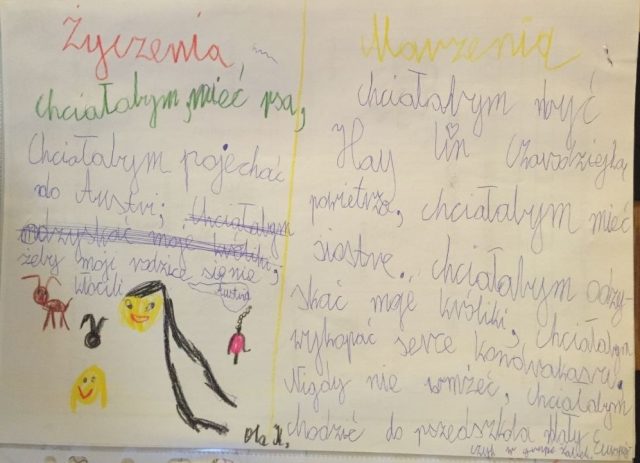 Życzenia,
chciałabym, mieć psa,
Chciałabym pojechać
do Austri; Chciałabym
odzyskać moje króliki;
żeby moji rodzice się nie;
kłócili
Austria
Ola K.
Marzenia
chciałabym być
Hay lin czarodziejką
powietrza, chciałabym mieć
siostrę., chciałabym odzy-
skać moje króliki, chciałabym
wykopać serce kondrakaru.
Nigdy nie umżeć, chciałabym
chodzić do przedszkola Mały Europej
czyli w grupie